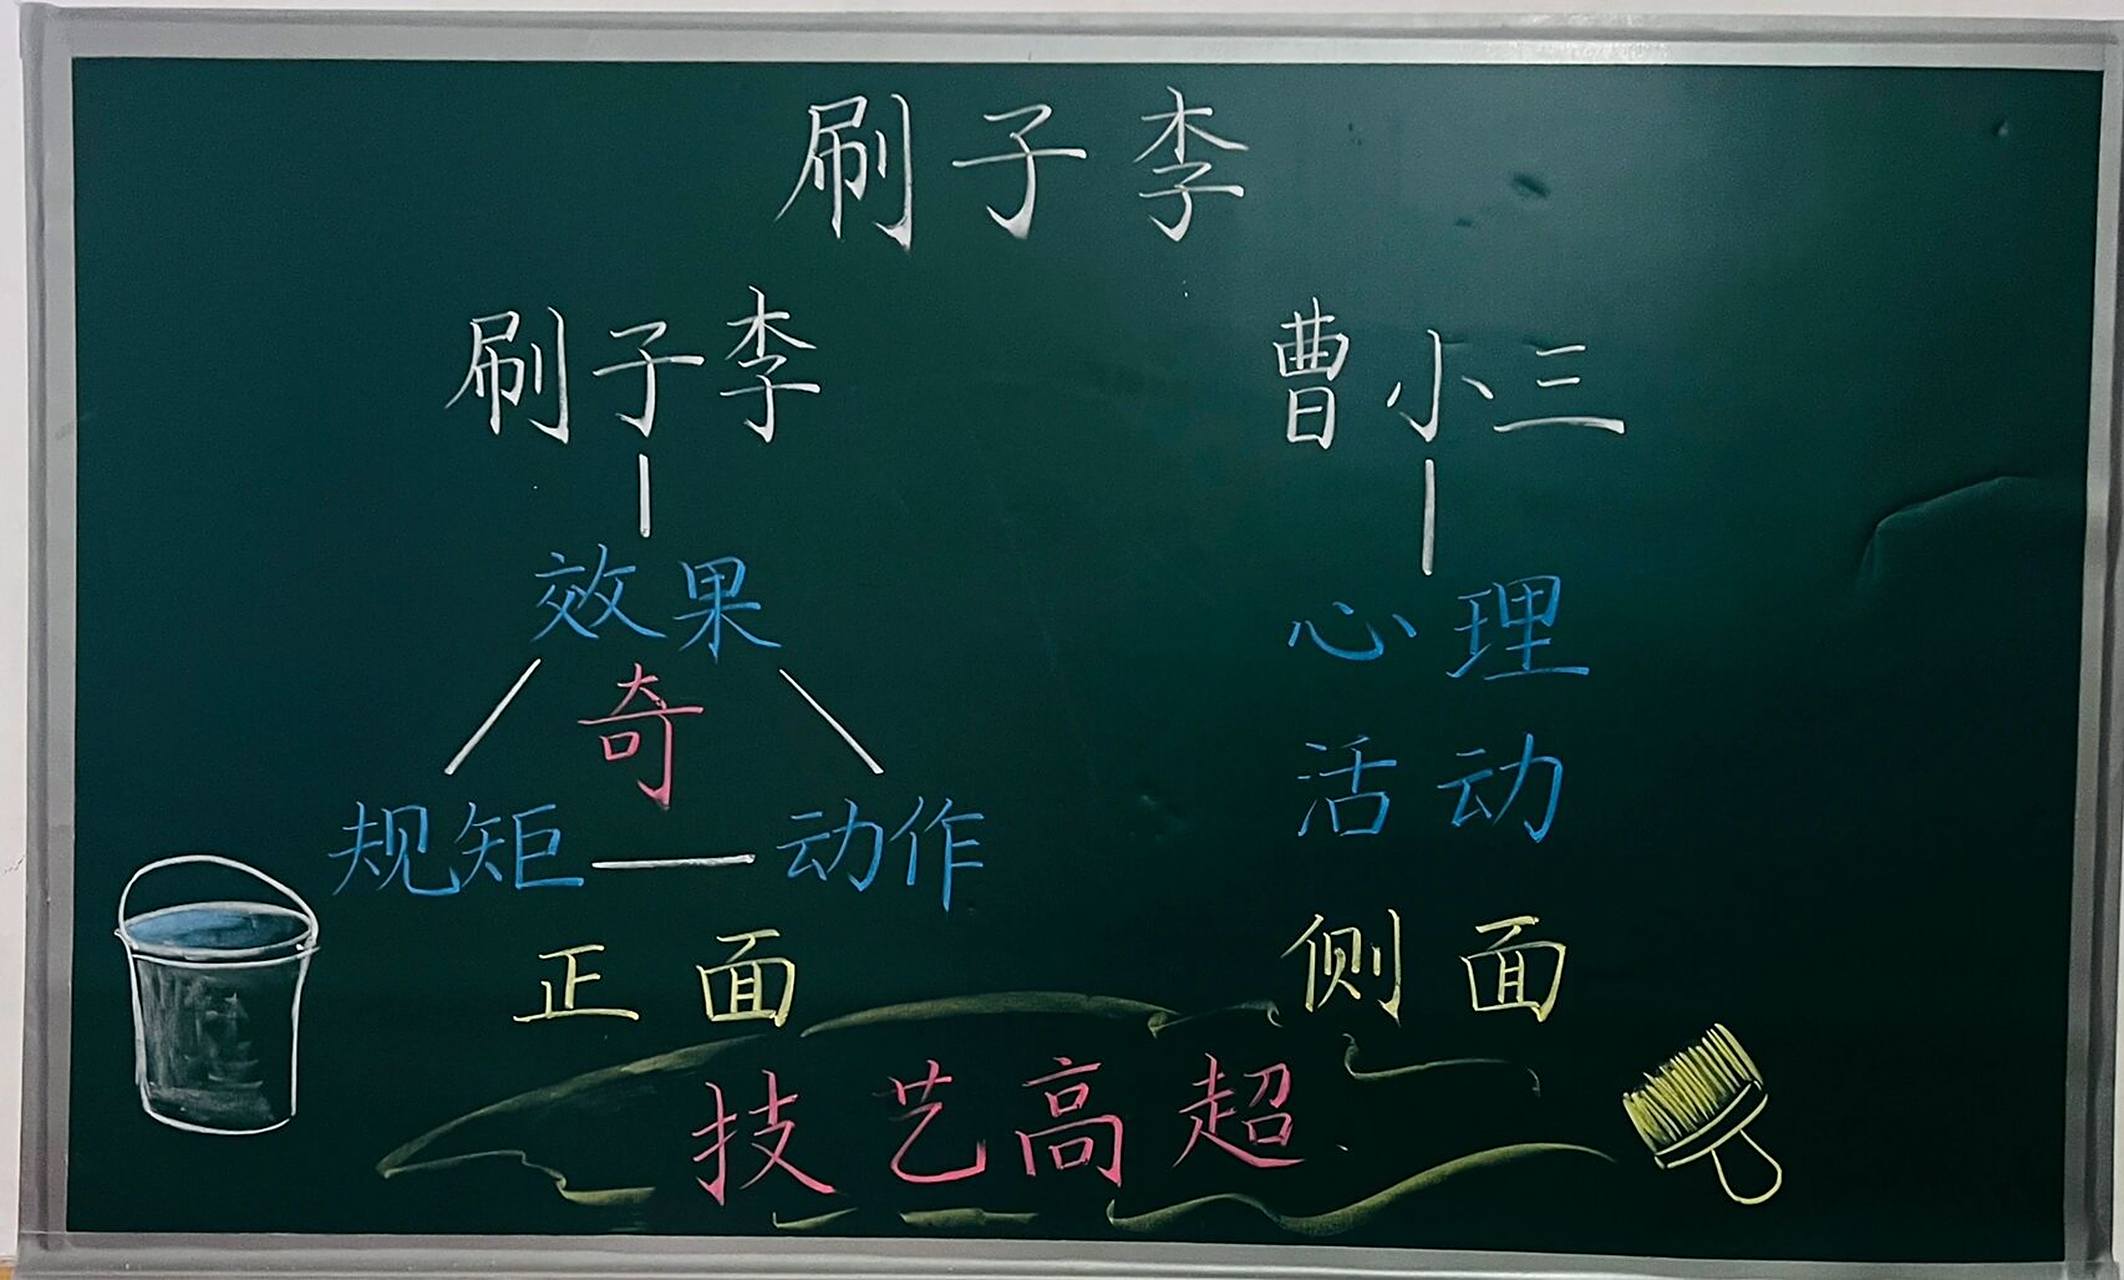 刷子李
刷子李
曹小三
效果
奇
规矩 动作
正面
心理
活动
侧面
技艺高超